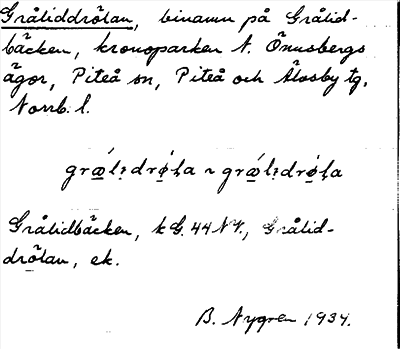 Gråliddrölan, binamn på Grålid-
bäcken, kronoparken N. Önusbergs
ägor, Piteå sn, Piteå och Älvsby tg,
Norrb. l.
Grålidbäcken, k G. 44 NV., Grålid-
drölan, ek.
B. Nygren 1934.